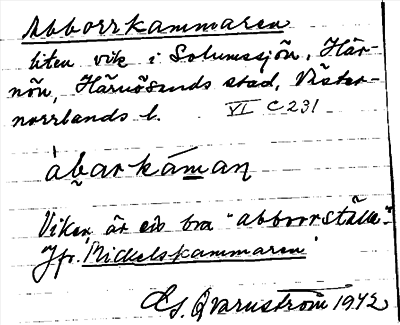 Abborrkammaren
liten vik i Solumssjön, Här-
nön, Härnösands stad, Väster-
norrlands l. VI C 231
àbarkáman
Viken är en bra "abborrställe".
Jfr. 'Mickelskammaren'
Es. Qvarnström 1942